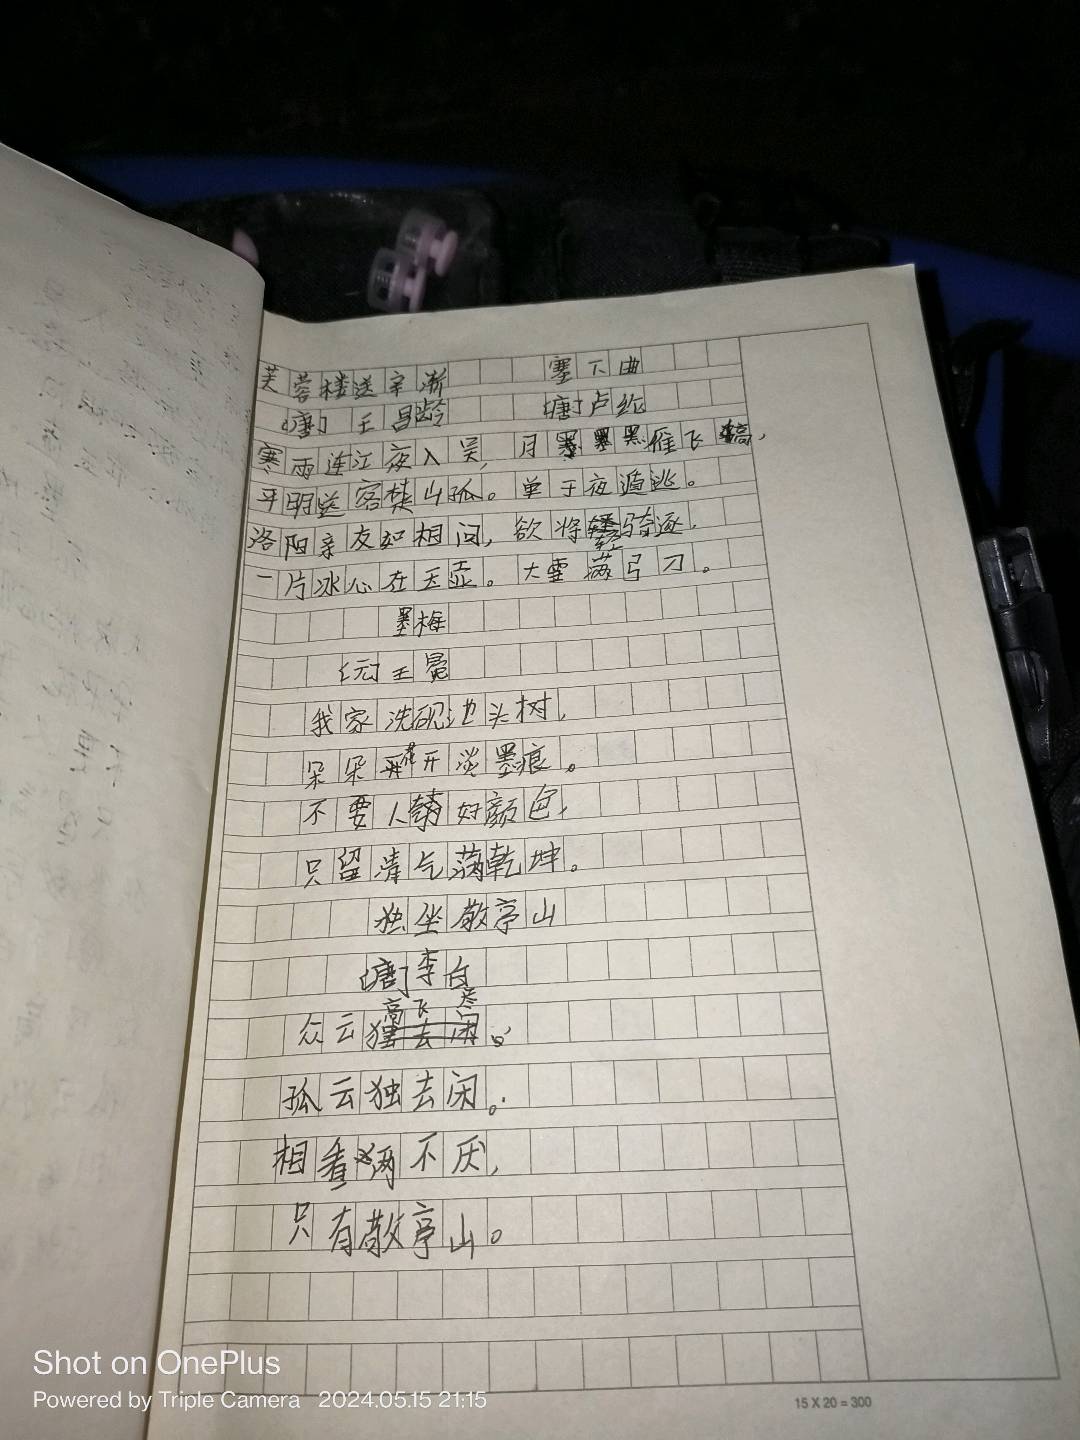 芙蓉楼送辛渐
[唐] 王昌龄
寒雨连江夜入吴,
平明送客楚山孤。
洛阳亲友如相问,
一片冰心在玉壶。
塞下曲
[唐]卢纶
月黑雁飞高,
单于夜遁逃。
欲将轻骑逐,
大雪满弓刀。
墨梅
[元]王冕
我家洗砚池头树,
朵朵花开淡墨痕。
不要人夸好颜色,
只留清气满乾坤。
独坐敬亭山
[唐]李白
众云高飞尽
孤云独去闲。
相看两不厌,
只有敬亭山。
15 X 20 = 300
Shot on OnePlus
Powered by Triple Camera 2024.05.15 21:15